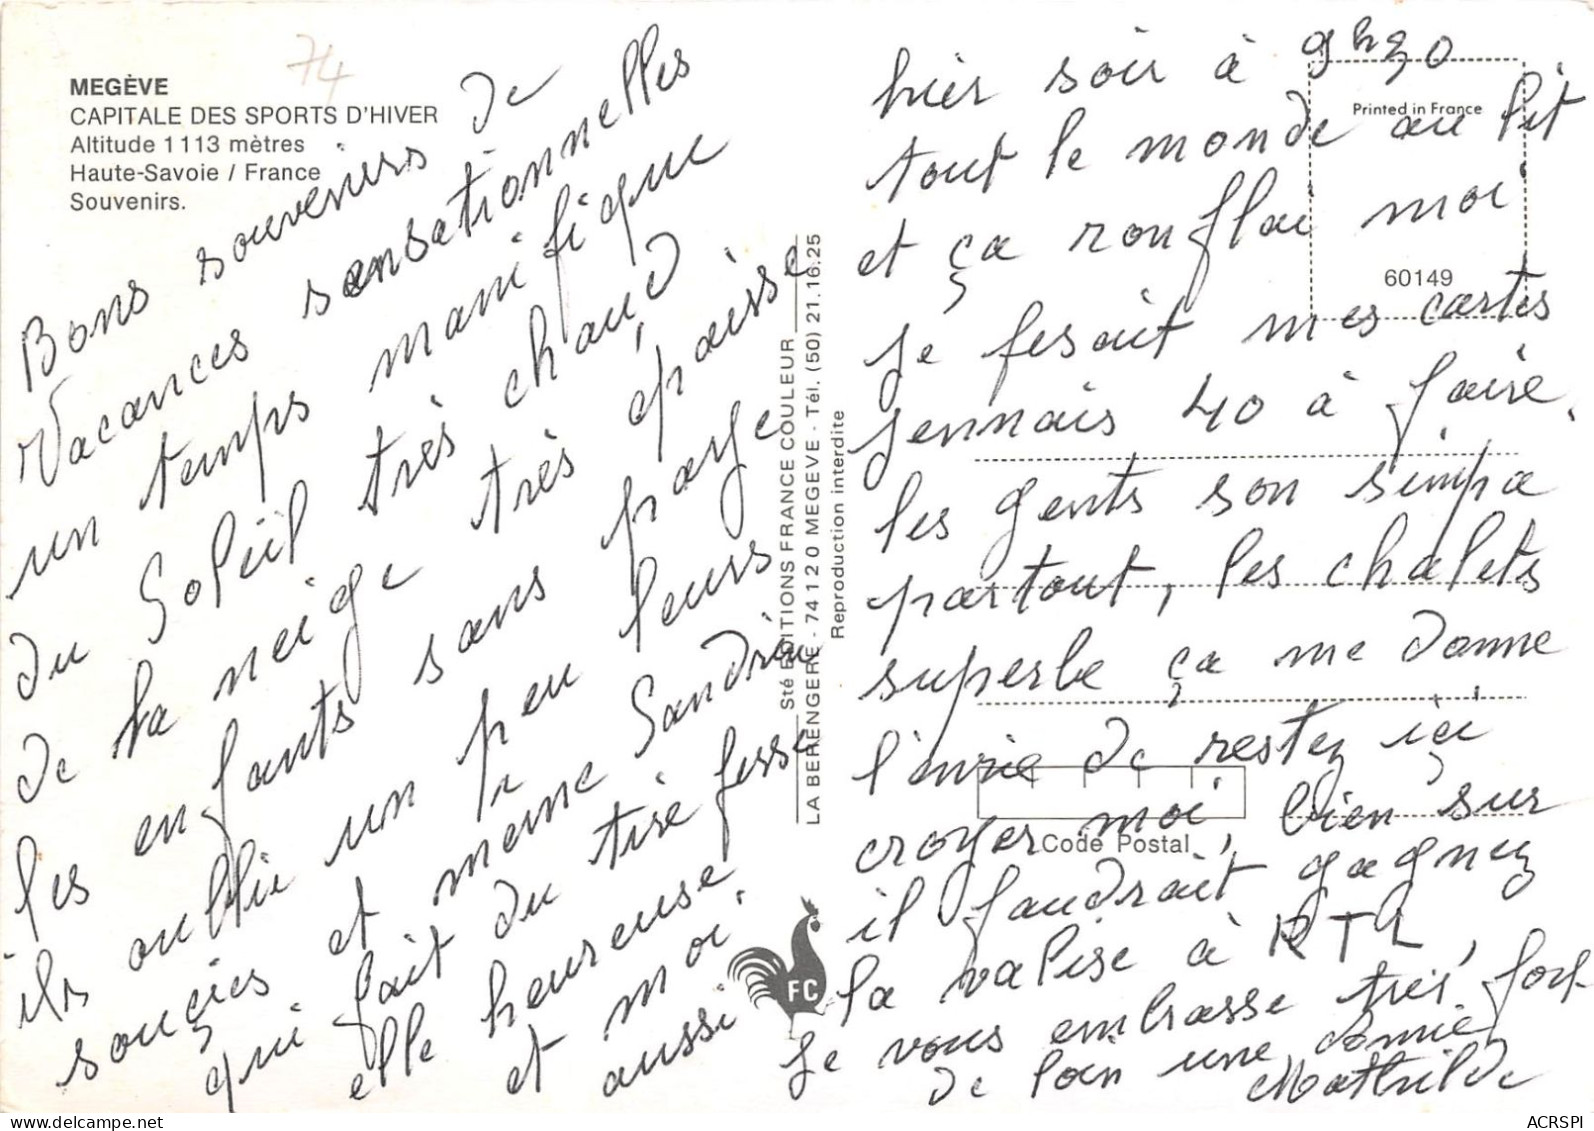 74
MEGÈVE
CAPITALE DES SPORTS D'HIVER
Altitude 1113 mètres
Haute-Savoie / France
Souvenirs.
Bons souvenirs de
Vacances sensationnelles
un temps manifique
du Soleil très chaud
de la neige très épaisse
les enfants sans parge
ils oublie un peu leurs
souçies et meme Sandrine
qui fait du tire fesse
elle heureuse
et moi.
aussi
Sté EDITIONS FRANCE COULEUR
LA BERENGERE - 74120 MEGEVE - Tél. (50) 21.16.25
Reproduction interdite
FC
Printed in France
60149
Code Postal
hier soir à 9h30
tout le monde au lit
et ça ronflai moi
je fesait mes cartes
jennais 40 à faire.
les gents son simpa
partout, les chalets
superbe ça me donne
l'envie de restez içi
croyer moi, bien sur
il faudrait gagnez
la valise à RTL,
Je vous embrasse très fort
de loin une amie
Mathilde
www.delcampe.net
ACRSPI